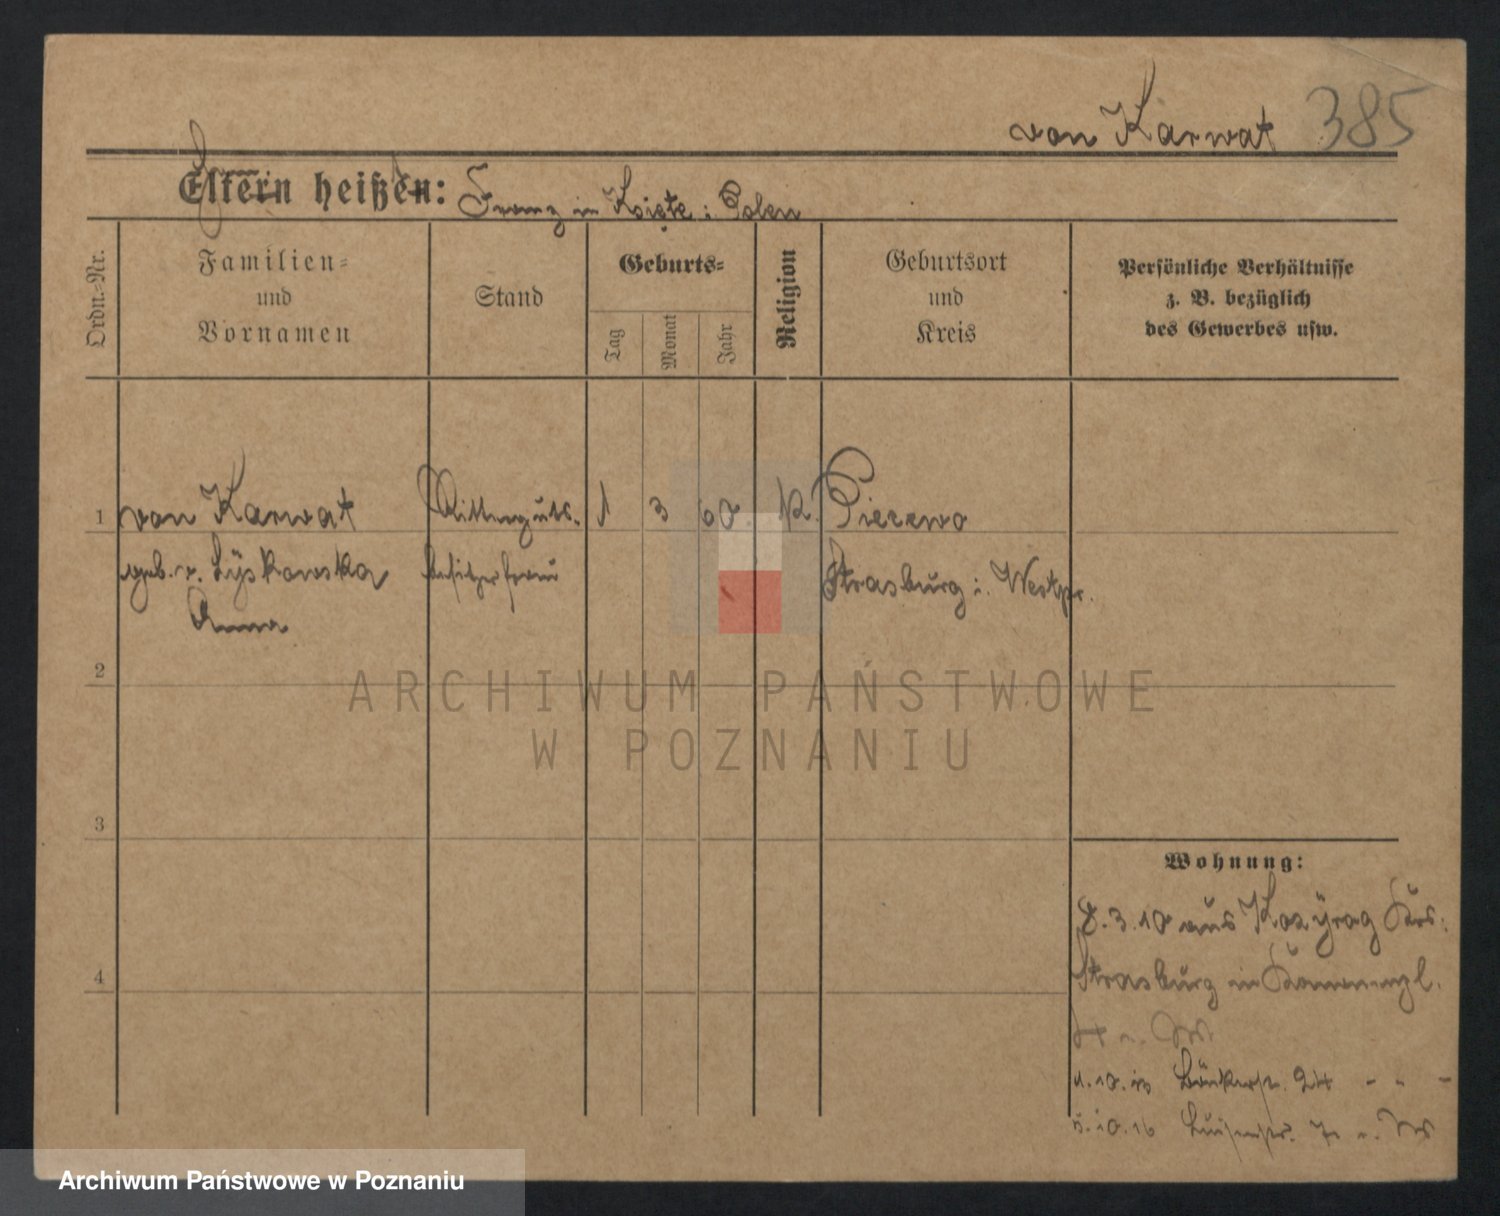 von Karwat 385
Eltern heißen: Franz in Kziste i Polen
Ordn.-Nr.
Familien-
und
Vornamen
Stand
Geburts-
Tag
Monat
Jahr
Religion
Geburtsort
und
Kreis
Persönliche Verhältnisse
z. B. bezüglich
des Gewerbes usw.
1 von Karwat Ritterguts- 1 3 60. K. Piecewo
geb. v. Lyskowska besitzerfrau Strasburg i. Westpr.
Anna
2
ARCHIWUM PAŃSTWOWE
W POZNANIU
3
Wohnung:
8.3.10 aus Kozyrag Krs.
4
Strasburg in
1.10.10 Bäckerstr. 24 - - -
5.10.16 Luisenstr.
Archiwum Państwowe w Poznaniu